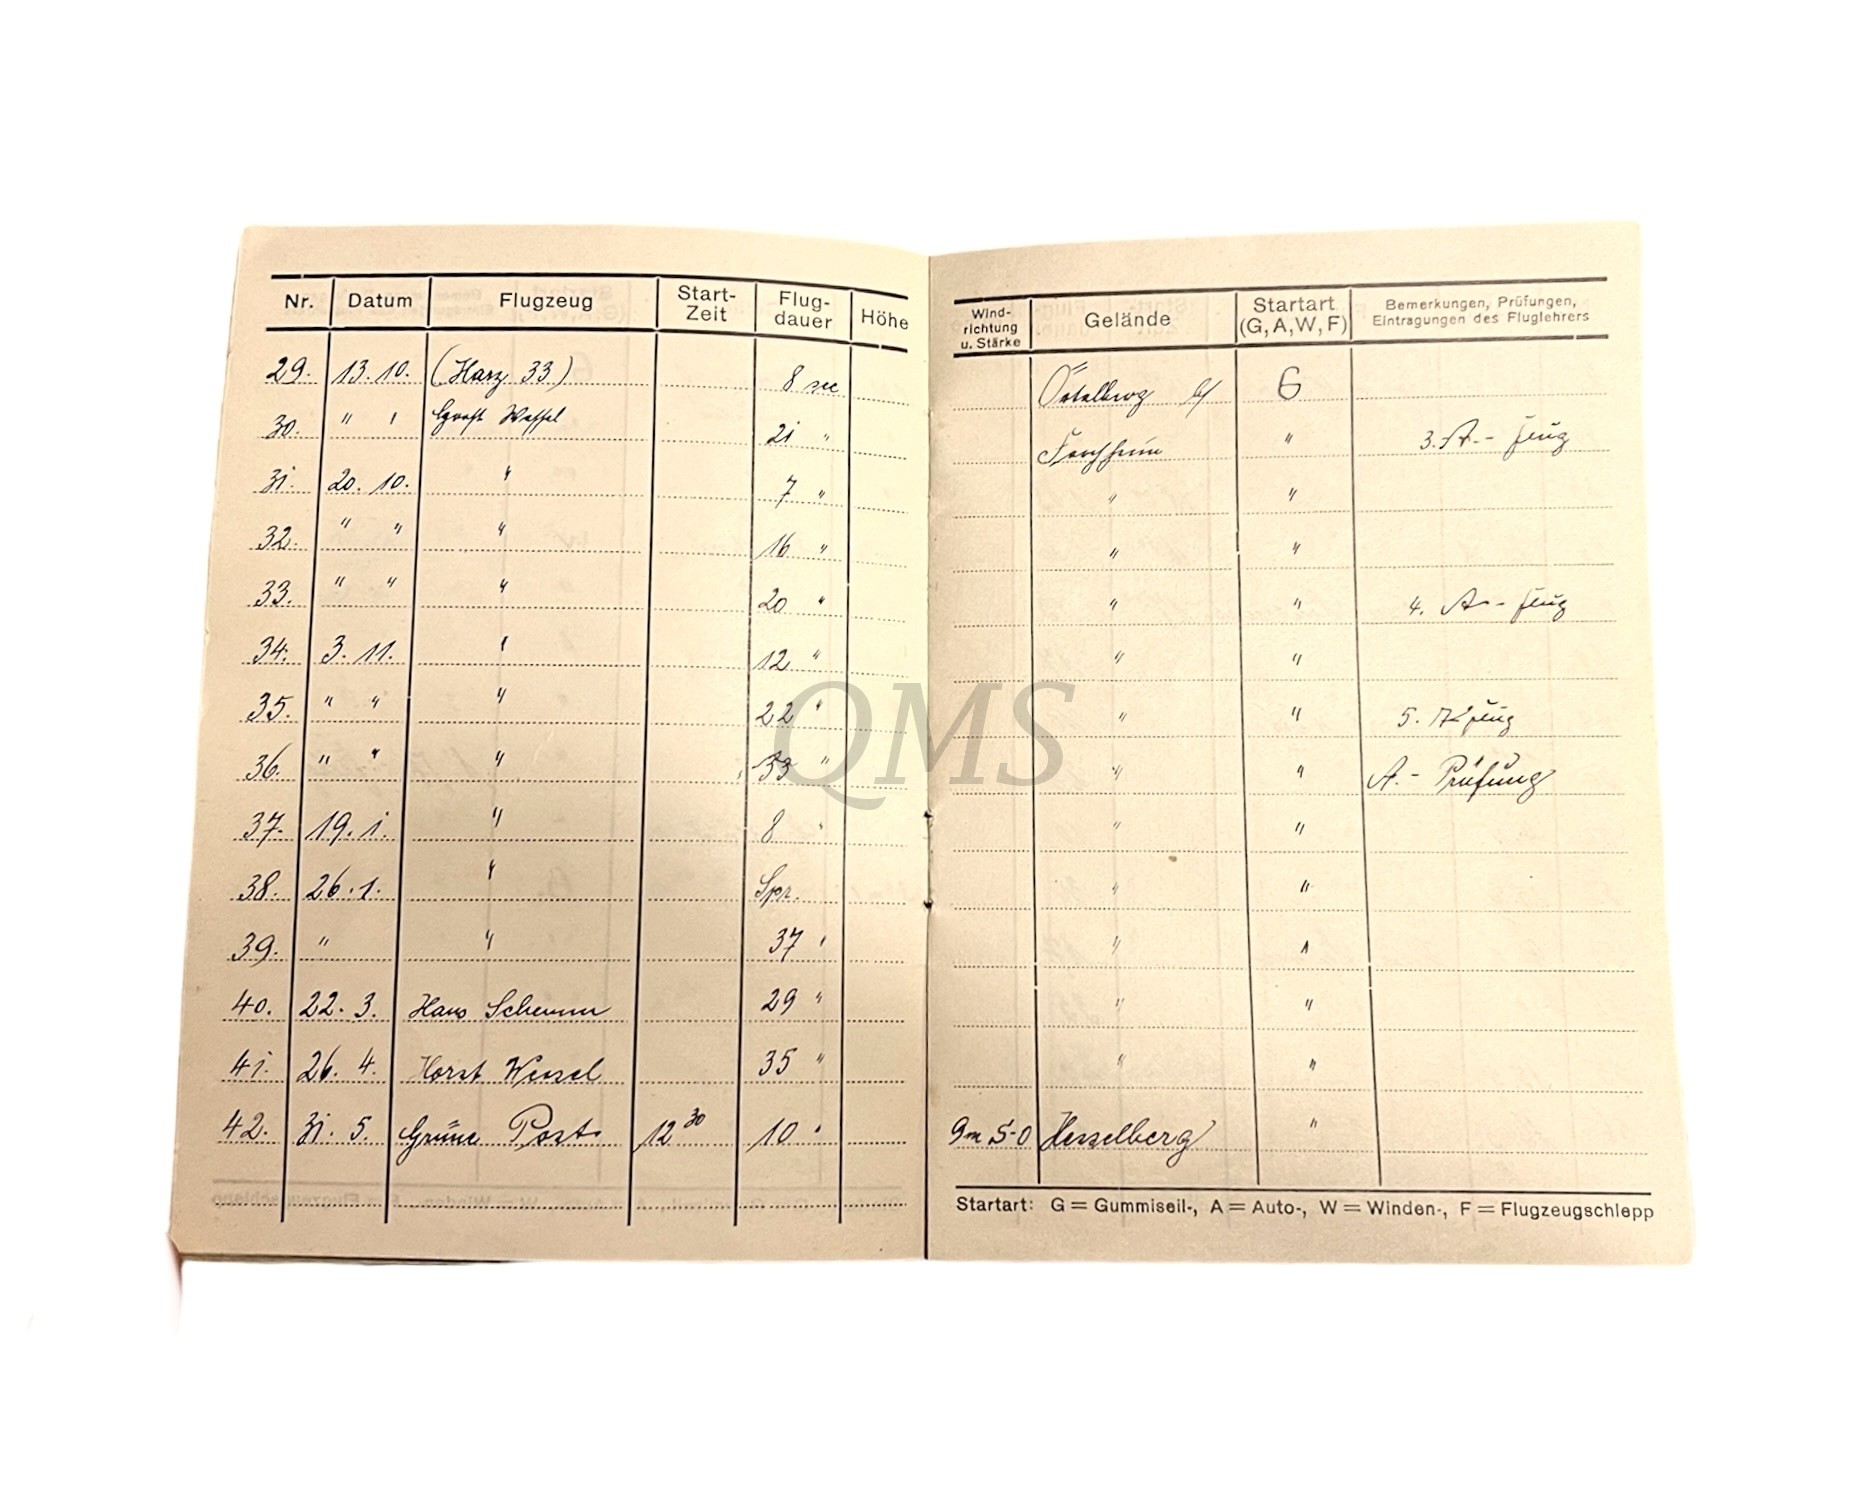 Nr. Datum Flugzeug Start-Zeit Flug-dauer Höhe Wind-richtung u. Stärke Gelände Startart (G, A, W, F) Bemerkungen, Prüfungen, Eintragungen des Fluglehrers
29. 13. 10. (Harz 33) 8 sec b/ G
30. " " Horst Wessel 21 " Forchheim " 3. A-
31. 20. 10. " 7 " " "
32. " " " 16 " " "
33. " " " 20 " " " 4. A-
34. 3. 11. " 12 " " "
35. " " " 22 " " " 5. A
36. " " " 33 " " " A.- Prüfung
37. 19. 1. " 8 " " "
38. 26. 1. " Spr. " "
39. " " 37 " " "
40. 22. 3. Hans Schemm 29 " " "
41. 26. 4. Horst Wessel 35 " " "
42. 31. 5. Grüne Post 12 30 10 " 9m S-O Hesselberg "
Startart: G = Gummiseil-, A = Auto-, W = Winden-, F = Flugzeugschlepp
QMS